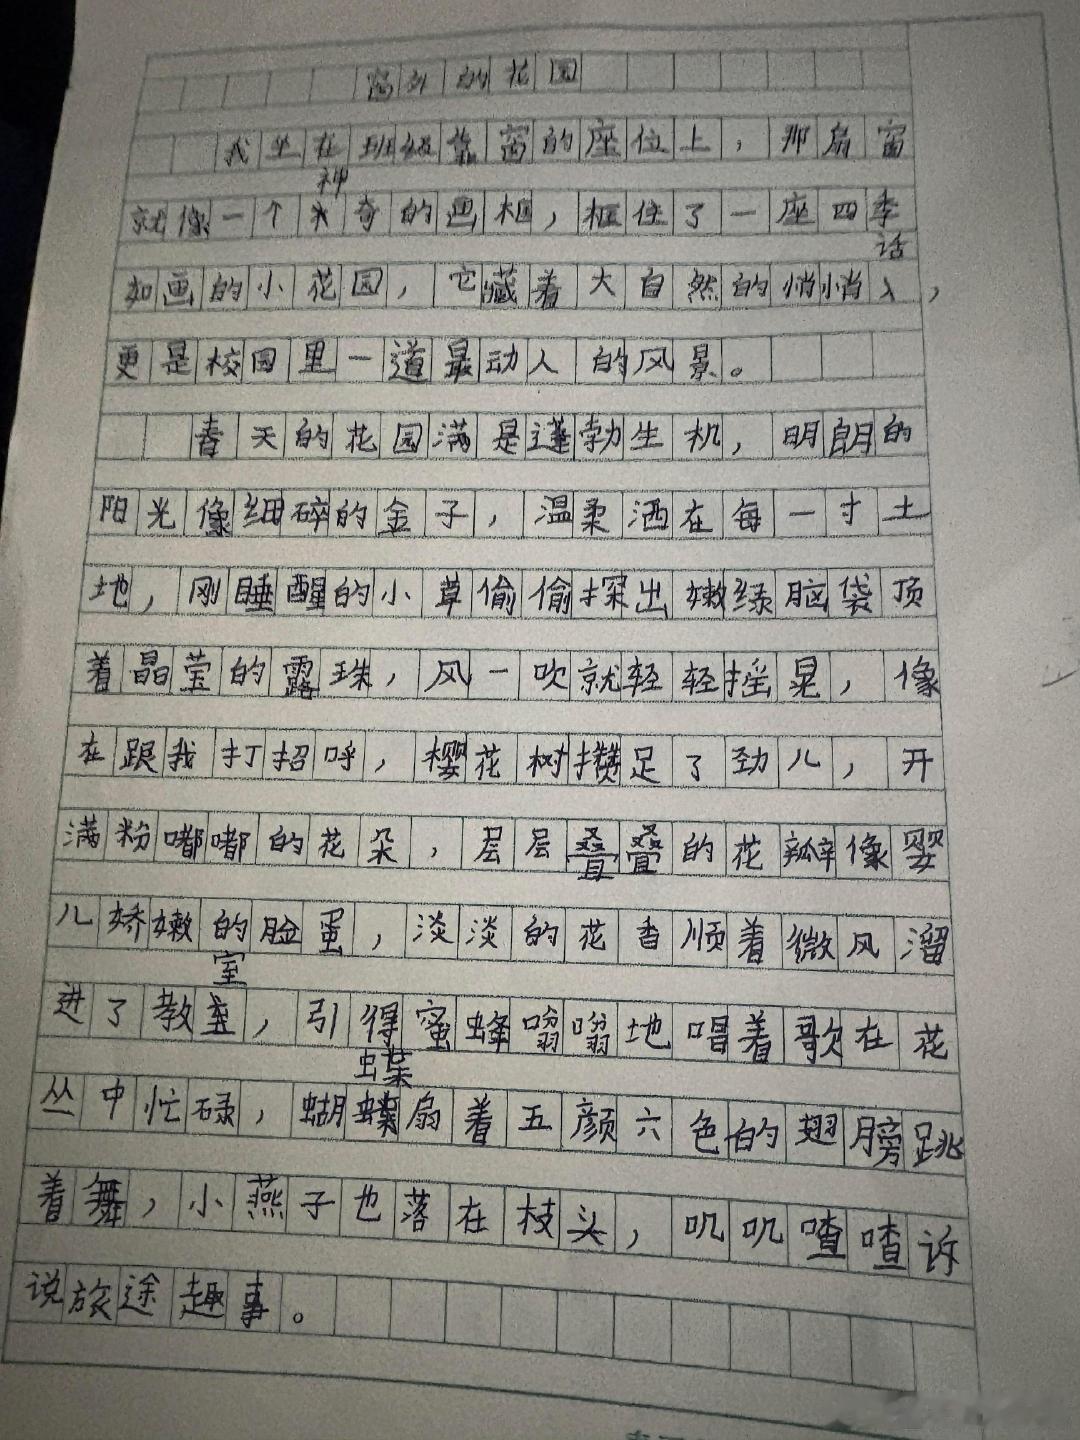 窗外的花园
我坐在班级靠窗的座位上，那扇窗
就像一个神奇的画框，框住了一座四季
如画的小花园，它藏着大自然的悄悄话，
更是校园里一道最动人的风景。
春天的花园满是蓬勃生机，明朗的
阳光像细碎的金子，温柔洒在每一寸土
地，刚睡醒的小草偷偷探出嫩绿脑袋顶
着晶莹的露珠，风一吹就轻轻摇晃，像
在跟我打招呼，樱花树攒足了劲儿，开
满粉嘟嘟的花朵，层层叠叠的花瓣像婴
儿娇嫩的脸蛋，淡淡的花香顺着微风溜
进了教室，引得蜜蜂嗡嗡地唱着歌在花
丛中忙碌，蝴蝶扇着五颜六色的翅膀跳
着舞，小燕子也落在枝头，叽叽喳喳诉
说旅途趣事。